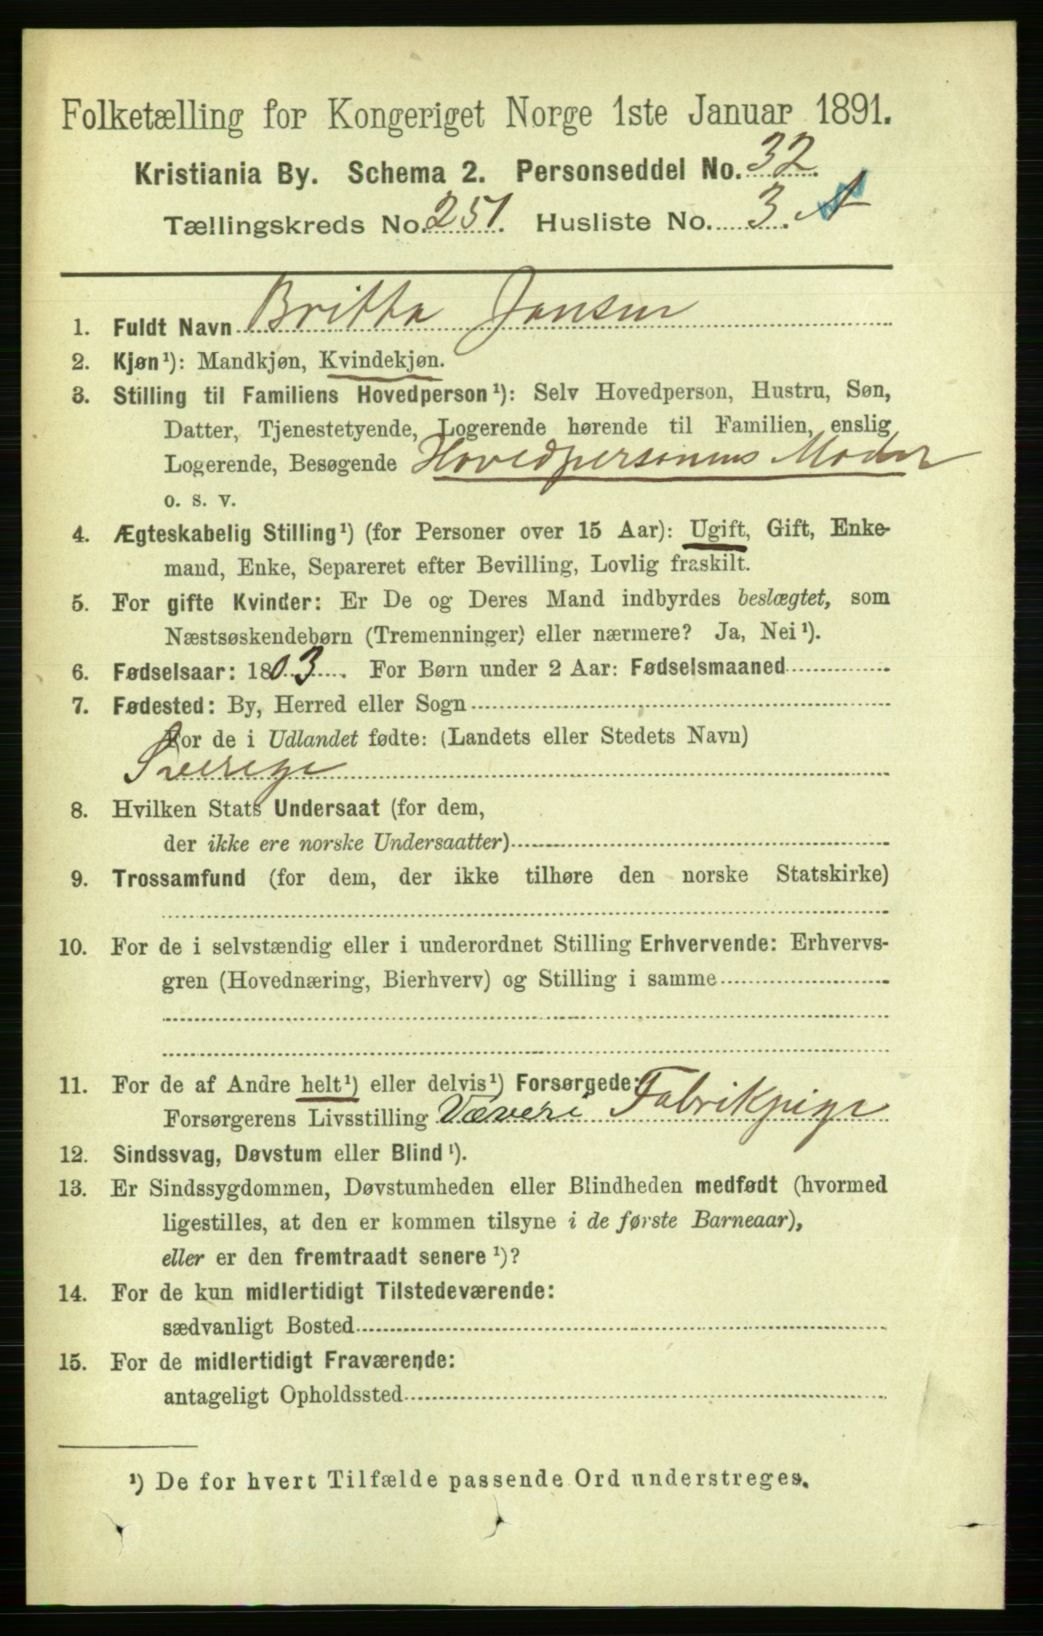 Folketælling for Kongeriget Norge 1ste Januar 1891.
Kristiania By. Schema 2. Personseddel No. 32.
Tællingskreds No. 251. Husliste No. 3. A
1. Fuldt Navn Britta Jansen
2. Kjøn¹): Mandkjøn, Kvindekjøn.
3. Stilling til Familiens Hovedperson¹): Selv Hovedperson, Hustru, Søn,
Datter, Tjenestetyende, Logerende hørende til Familien, enslig
Logerende, Besøgende Hovedpersonens Moder
o. s. v.
4. Ægteskabelig Stilling¹) (for Personer over 15 Aar): Ugift, Gift, Enke-
mand, Enke, Separeret efter Bevilling, Lovlig fraskilt.
5. For gifte Kvinder: Er De og Deres Mand indbyrdes beslægtet, som
Næstsøskendebørn (Tremenninger) eller nærmere? Ja, Nei¹).
6. Fødselsaar: 1803. For Børn under 2 Aar: Fødselsmaaned
7. Fødested: By, Herred eller Sogn
For de i Udlandet fødte: (Landets eller Stedets Navn)
Sverige
8. Hvilken Stats Undersaat (for dem,
der ikke ere norske Undersaatter)
9. Trossamfund (for dem, der ikke tilhøre den norske Statskirke)
10. For de i selvstændig eller i underordnet Stilling Erhvervende: Erhvervs-
gren (Hovednæring, Bierhverv) og Stilling i samme
11. For de af Andre helt¹) eller delvis¹) Forsørgede:
Forsørgerens Livsstilling Væveri Fabrikpige
12. Sindssvag, Døvstum eller Blind¹).
13. Er Sindssygdommen, Døvstumheden eller Blindheden medfødt (hvormed
ligestilles, at den er kommen tilsyne i de første Barneaar),
eller er den fremtraadt senere¹)?
14. For de kun midlertidigt Tilstedeværende:
sædvanligt Bosted
15. For de midlertidigt Fraværende:
antageligt Opholdssted
¹) De for hvert Tilfælde passende Ord understreges.